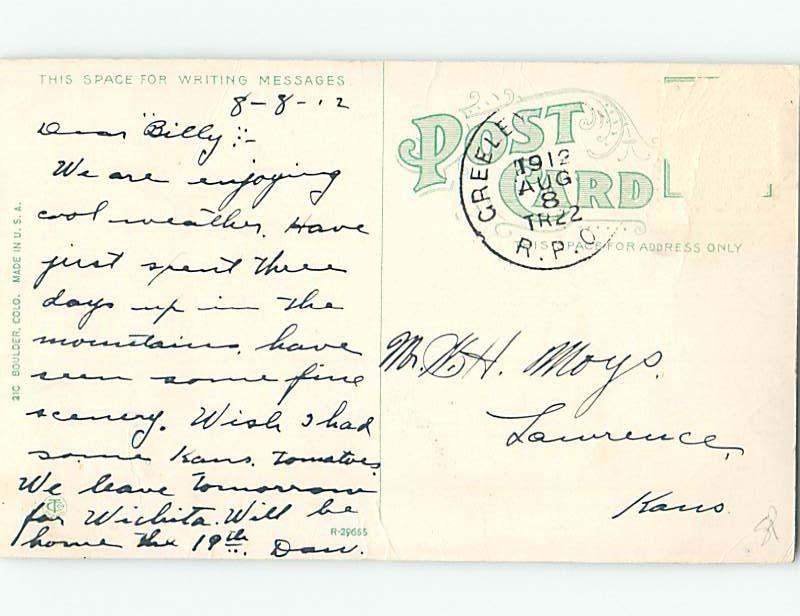 THIS SPACE FOR WRITING MESSAGES
8-8-12
Dear "Billy":-
We are enjoying
cool weather. Have
just spent three
days up in the
mountains, have
seen some fine
scenery. Wish I had
some Kans. tomatoes
We leave tomorrow
for Wichita. Will be
home the 19th. Dan.
21C BOULDER, COLO. MADE IN U.S.A.
R-29655
POST
CARD
GREELEY
1912
AUG
8
TR22
R.P.O.
THIS SPACE FOR ADDRESS ONLY
Mr. H. Moys.
Lawrence,
Kans.